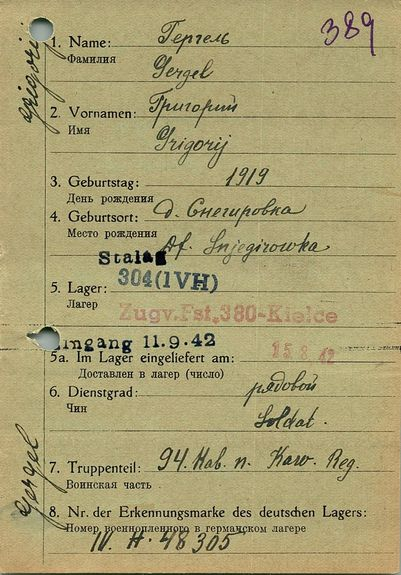 389
1. Name: Гергель
Фамилия
Gergel
Grigorij
2. Vornamen: Григорий
Имя
Grigorij
3. Geburtstag: 1919
День рождения
4. Geburtsort: д. Снегировка
Место рождения
Df. Snjegirowka
Stalag
304(IVH)
5. Lager:
Лагерь
Zugv.Fst.380-Kielce
Eingang 11.9.42
5a. Im Lager eingeliefert am: 15.8.42
Доставлен в лагер (число)
6. Dienstgrad: рядовой
Чин
Soldat.
Gergel
7. Truppenteil: 94. Kav. Reg.
Воинская часть
8. Nr. der Erkennungsmarke des deutschen Lagers:
Номер военнопленного в германском лагере
IV. H. 48305